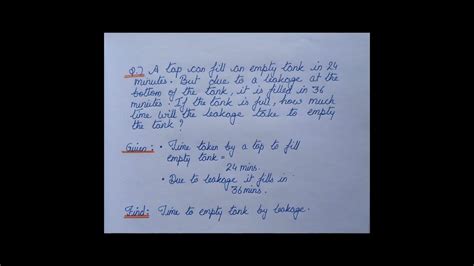 Q2) A tap can fill an empty tank in 24
minutes. But due to a leakage at the
bottom of the tank, it is filled in 36
minutes. If the tank is full, how much
time will the leakage take to empty
the tank?
Given: • Time taken by a tap to fill
empty tank =
24 mins.
• Due to leakage it fills in
36 mins.
Find: Time to empty tank by leakage.